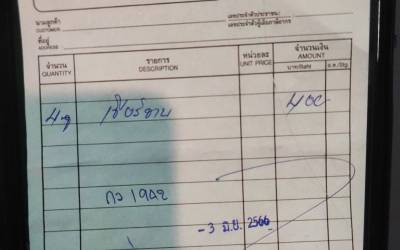 นามลูกค้า
CUSTOMER
เลขประจำตัวประชาชน/
เลขประจำตัวผู้เสียภาษีอากร
ที่อยู่
ADDRESS
จำนวน รายการ หน่วยละ จำนวนเงิน
QUANTITY DESCRIPTION UNIT PRICE AMOUNT
บาท/Baht ส.ต./Stg
400
กว 1942
- 3 มิ.ย. 2566